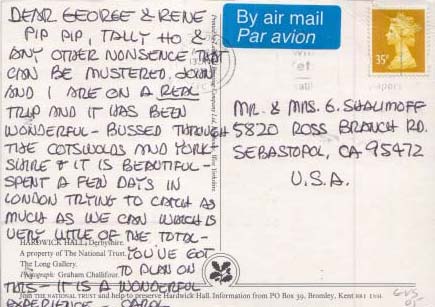 DEAR GEORGE & RENE
PIP PIP, TALLY HO &
ANY OTHER NONSENCE THAT
CAN BE MUSTERED. JOHN
AND I ARE ON A REAL
TRIP AND IT HAS BEEN
WONDERFUL - BUSSED THROUGH
THE COTSWOLDS AND YORK-
SHIRE & IT IS BEAUTIFUL -
SPENT A FEW DAYS IN
LONDON TRYING TO CATCH AS
MUCH AS WE CAN WHICH IS
VERY LITTLE OF THE TOTAL -
YOU'VE GOT
TO PLAN ON
THIS - IT IS A WONDERFUL
EXPERIENCE - CAROL
HARDWICK HALL, Derbyshire.
A property of The National Trust.
The Long Gallery.
Photograph: Graham Challifour
Join THE NATIONAL TRUST and help to preserve Hardwick Hall. Information from PO Box 39, Bromley, Kent BR1 1NH
By air mail
Par avion
35
MR. & MRS. G. SHALIMOFF
5820 ROSS BRANCH RD.
SEBASTOPOL, CA 95472
U.S.A.